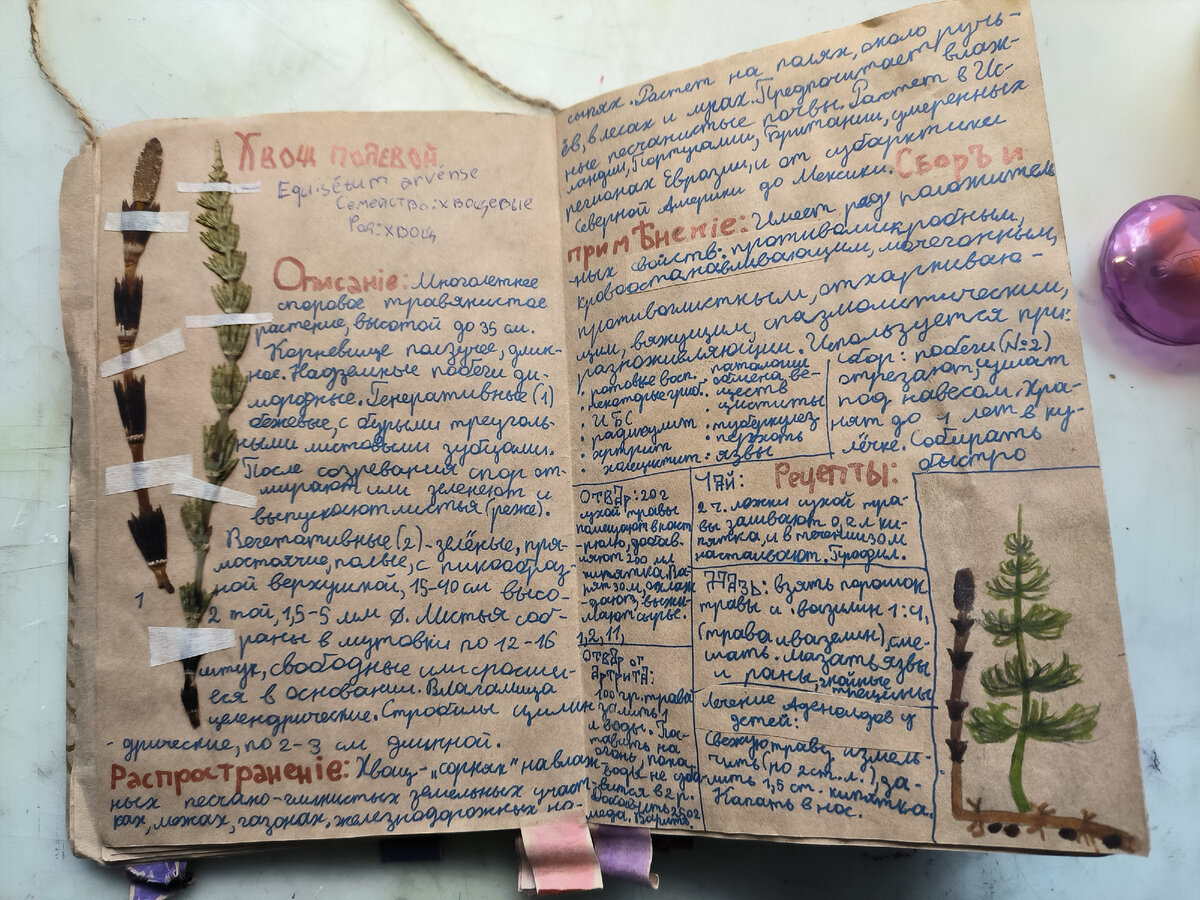 Хвощ полевой
Equisétum arvénse
Семейство: хвощевые
Род: хвощ
Описаніе: Многолетнее
споровое травянистое
растение, высотой до 35 см.
Корневище ползучее, длин-
ное. Надземные побеги ди-
мородные. Генеративные (1)
бежевые, с бурыми треуголь-
ными листовыми зубцами.
После созревания спор от-
мирают или зеленеют и
выпускают листья (реже).
Вегетативные (2) - зелёные, пря-
мостоячие, полые, с пикообраз-
ной верхушкой, 15-40 см высо-
той, 1,5-5 мм ø. Листья соб-
раны в мутовки по 12-16
штук, свободные или сросши-
еся в основании. Влагалища
целендрические. Стробилы цилин
- дрические, по 2-3 см длинной.
Распространеніе: Хвощ - „сорняк" на влаж
ных песчано-глинистых земельных участ-
ках, межах, газонах. железнодорожных на-
1
2
сыпях. Растет на полях, около ручь-
ёв, в лесах и лугах. Предпочитает влаж-
ные песчанистые почвы. Растет в Ис-
ландии, Португалии, Британии, умеренных
регионах Евразии, и от субарктики
Северной Америки до Мексики. Сборъ и
примѣненіе: Имеет ряд положитель
-ных свойств: противомикробным,
кровоостанавливающим, мочегонным,
противоглистным, отхаркиваю-
щим, вяжущим, спазмолитическим,
разноживляющим. Используется при:
· некоторые
· ИБС
· радикулит
· артрит
· патологии
обмена ве-
ществ
· циститы
· туберкулез
· перхоть
· язвы
Сбор: побеги (№2)
отрезают, сушат
под навесом. Хра-
нят до 1 лет в ку
лёчке. Собирать
быстро
Рецепты:
Отвар: 20 г
сухой травы
помещают в каст
рюлю, добав-
ляют 200 мл
кипятка. Ва-
рят 30 м, охлаж
дают, выжи-
мают сырье.
1, 2, 11,
Отвар от
артрита:
100 гр. трава
залить 1
л воды. Пос-
тавить на
огонь, пока
воды не
вится в 2 р.
Добавить 200 г
меда. Варить.
Чай:
2 ч. ложки сухой тра-
вы заливают 0,2 л ки-
пятка, и в течении 30 м
настаивают. Профил.
Мазь: взять порошок
травы и вазилин 1:4,
(трава и вазелин), сме-
шать. Мазать язвы
и раны, гнойные
трещины
Лечение Аденоидов у
детей:
Свежую траву измель-
чить (по 2 ст. л.) за-
лить 1,5 ст. кипятка.
Капать в нос.